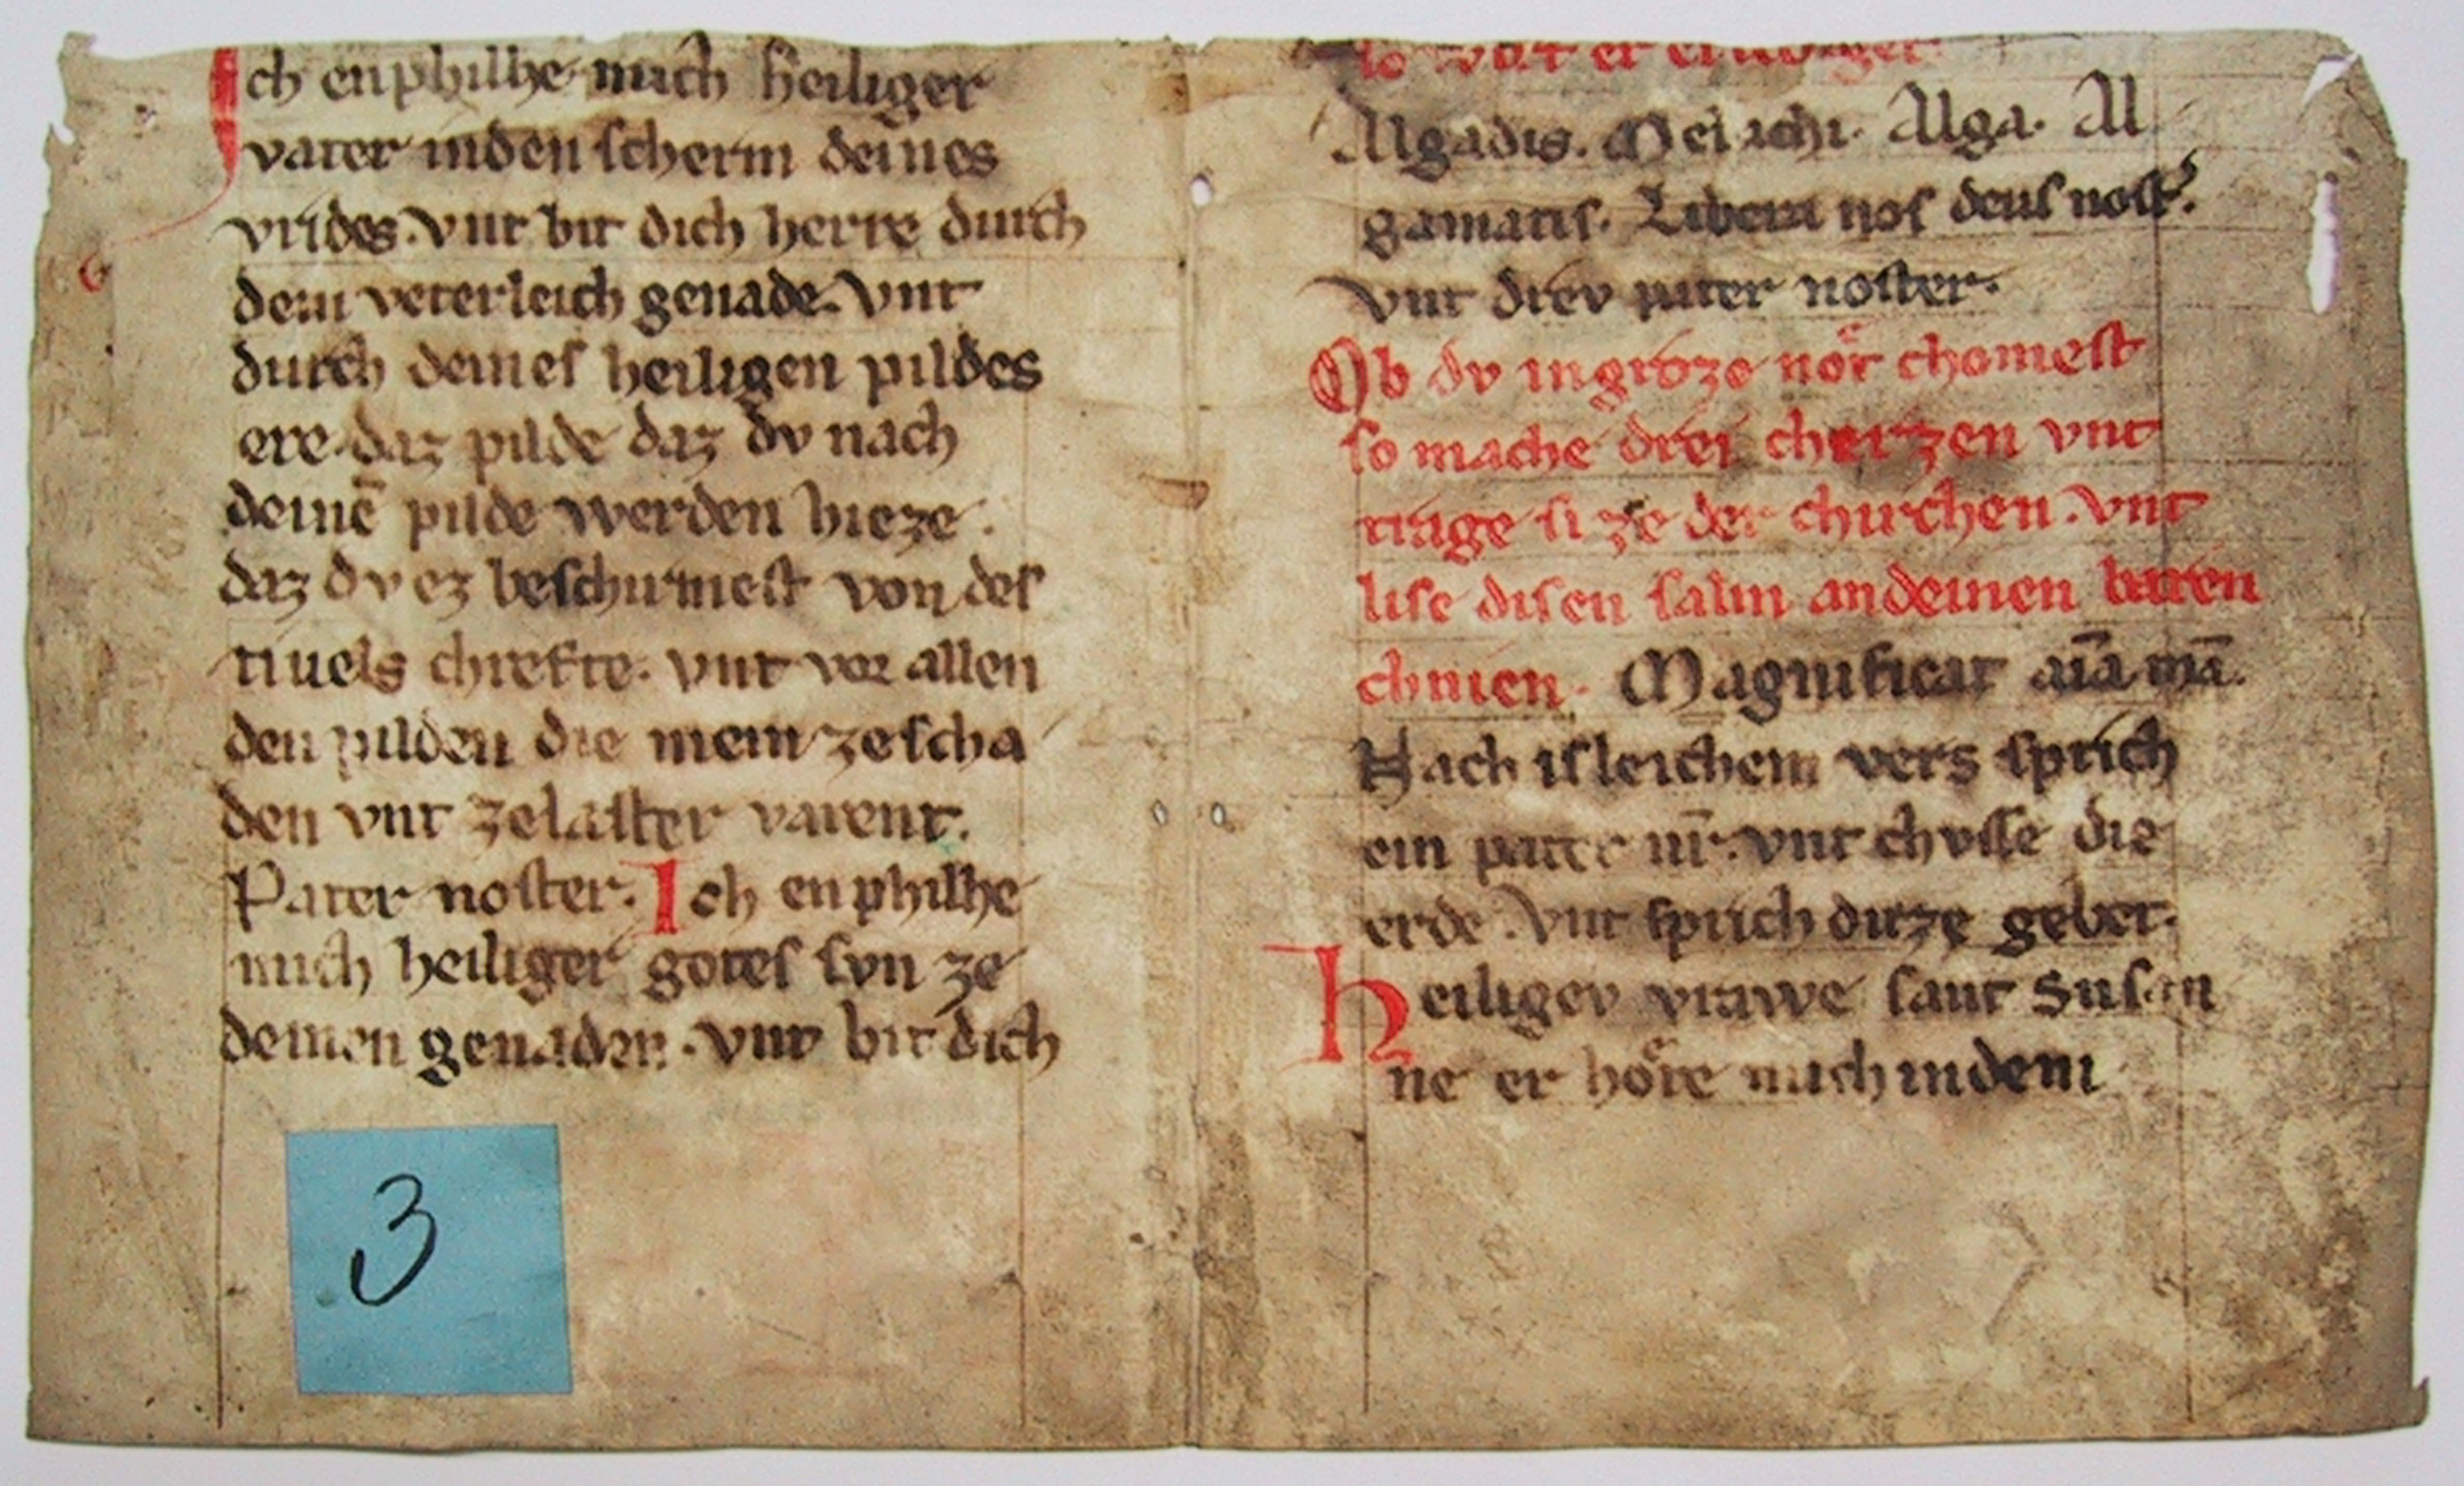 Ich enphilhe mich heiliger
vater inden ſcherm deines
vrides. vnt bit dich herre durch
dein veterleich genade. vnt
durch deineſ heiligen pildes
ere. daz pilde daz dv nach
deinē pilde werden hieze.
daz dv ez beſchirmeſt von deſ
tiuels chrefte. vnt vor allen
den pilden die mein zeſcha
den vnt zelaſter varent.
Pater noſter. Ich enphilhe
mich heiliger goteſ ſvn ze
deinen genaden. vnt bit dich
ſo wirt er
Algadis. Alga. Al
gamatiſ. Libera noſ deuſ noſt͛.
vnt drev pater noſter.
Ob dv ingroze noͤt chomeſt
ſo mache drei cherzen vnt
trage ſi ze der chirchen. vnt
liſe diſen ſalm andeinen baren
chnien. Magnificat aīa mā.
Nach iſleichem vers ſprich
ein pater nr̄. vnt chvſſe die
erde. vnt ſprich ditze gebet.
heiligev vrawe ſant Suſan
ne er hoͤre mich indem
3